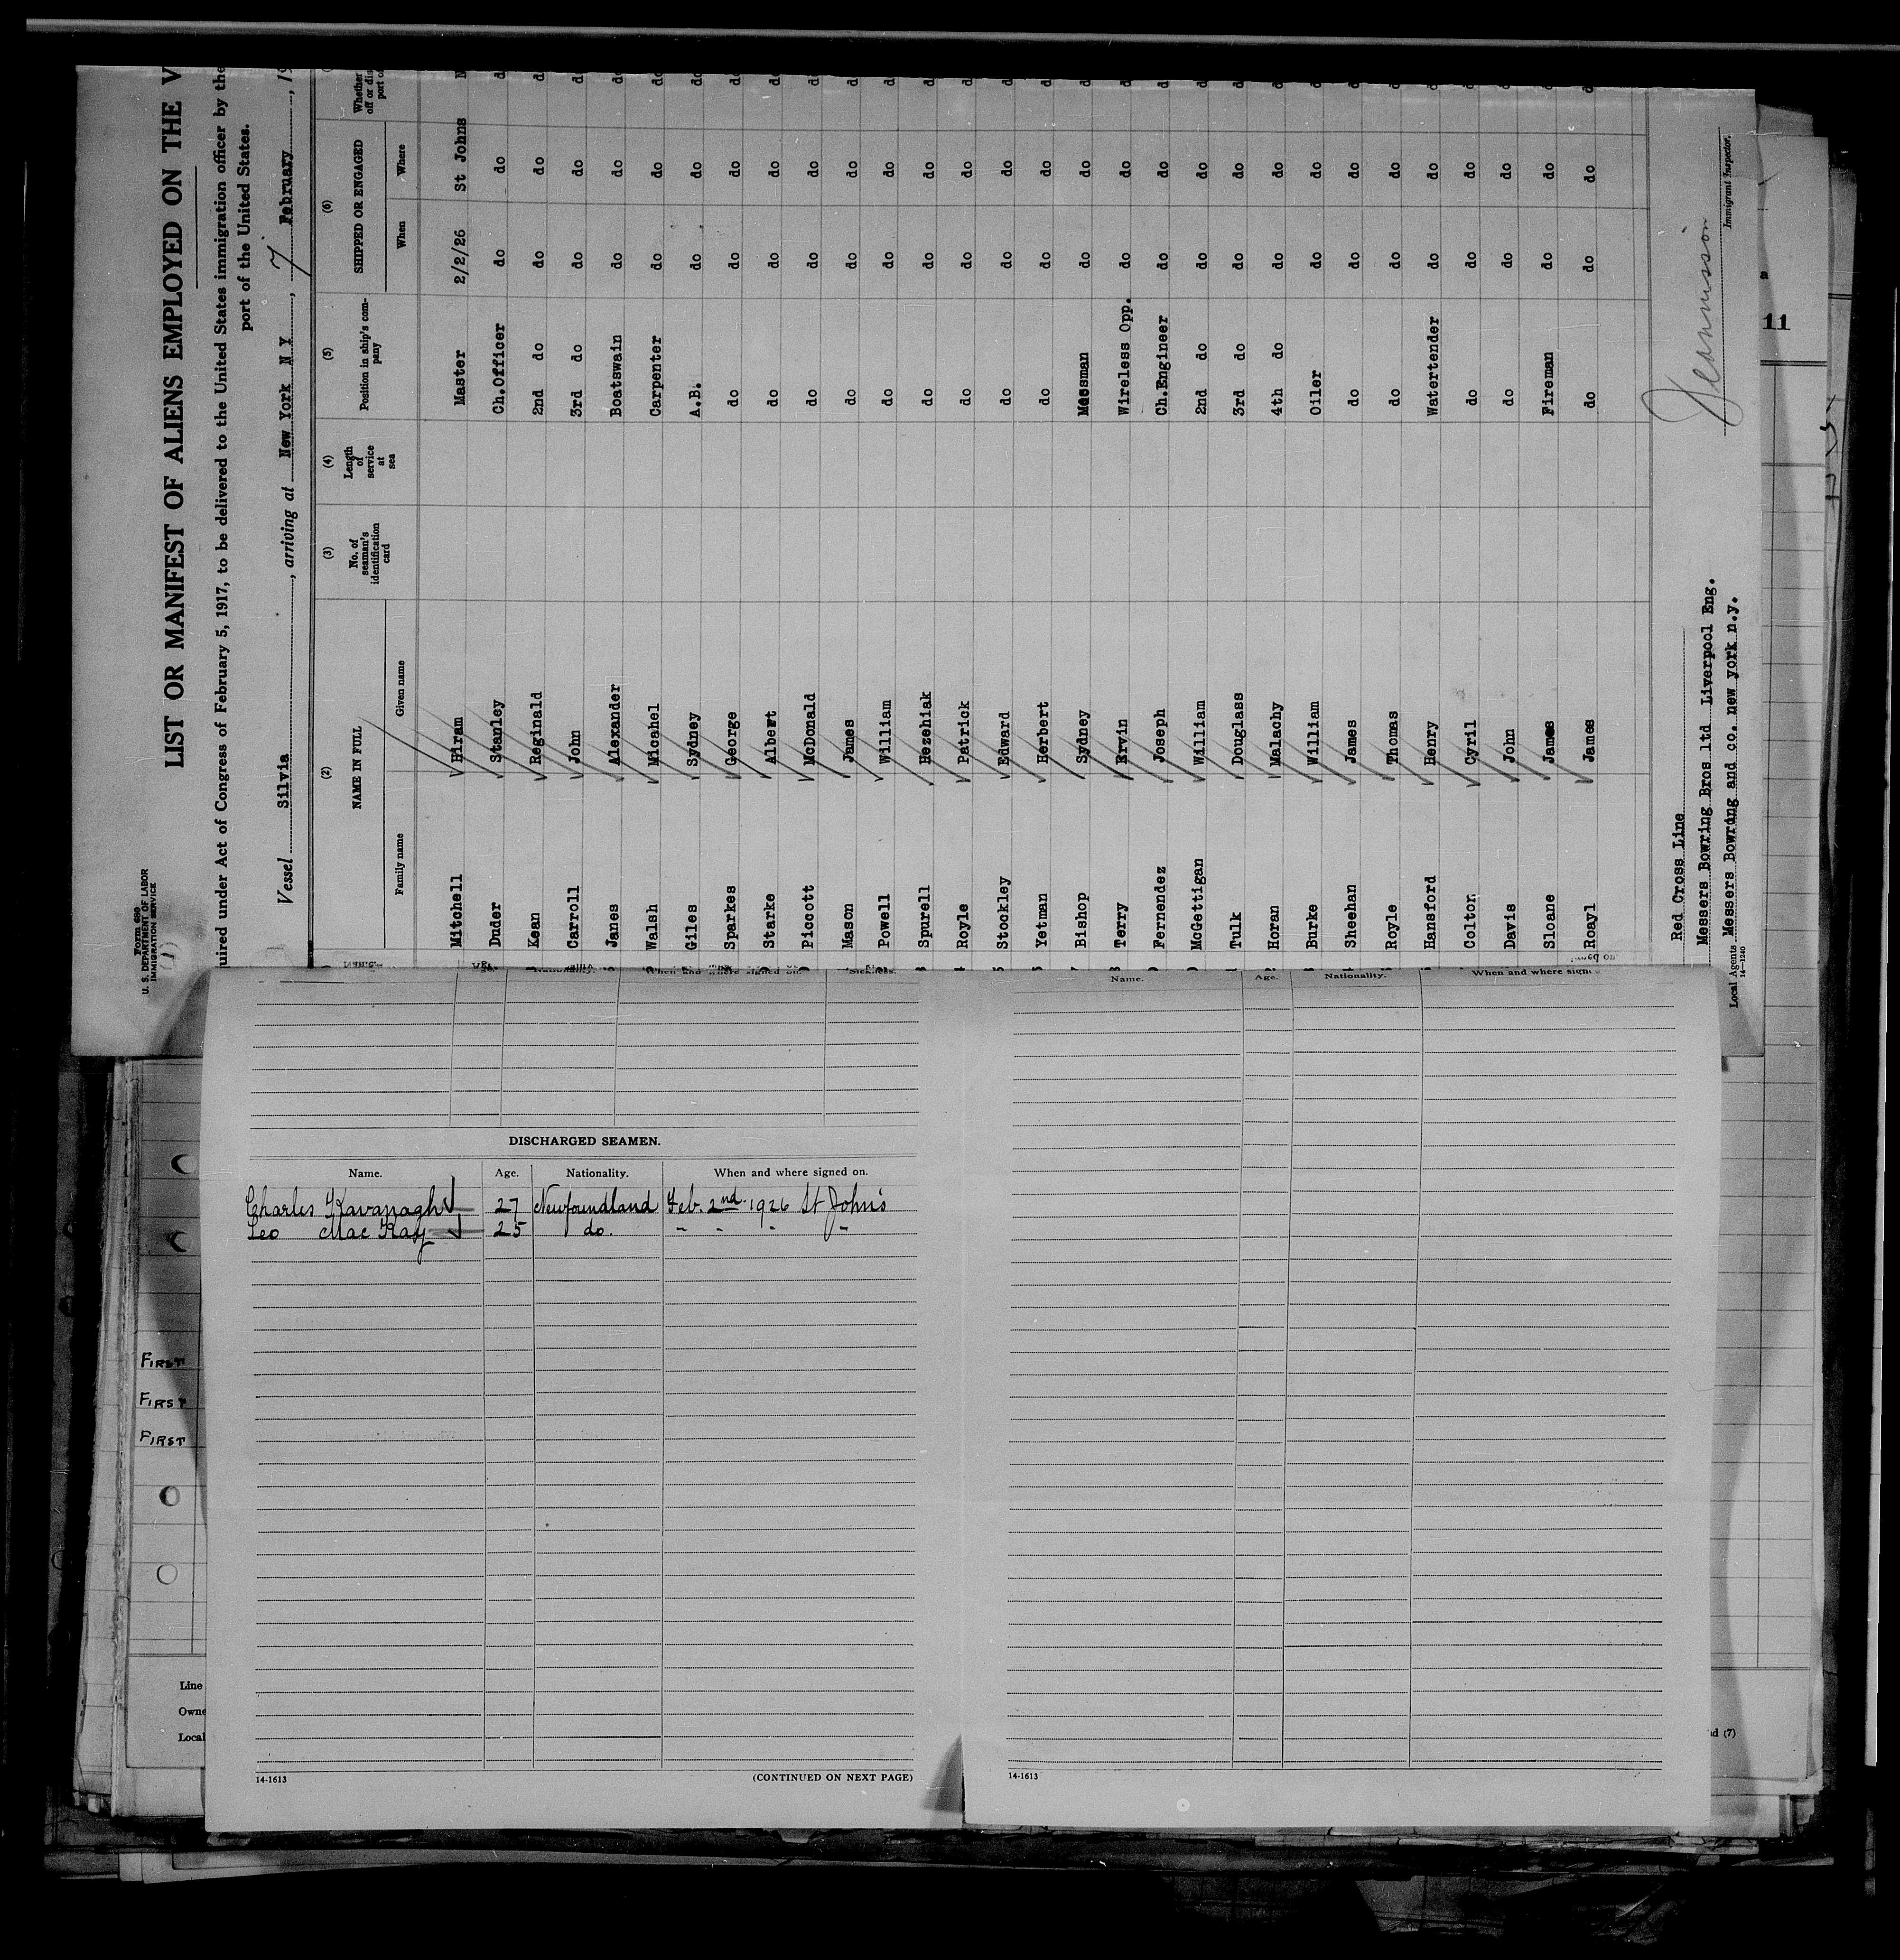 Form 680
U. S. DEPARTMENT OF LABOR
IMMIGRATION SERVICE
(1)
LIST OR MANIFEST OF ALIENS EMPLOYED ON THE V
quired under Act of Congress of February 5, 1917, to be delivered to the United States immigration officer by the
port of the United States.
Vessel Silvia, arriving at New York N Y, 7 February, 19
(2) (3) (4) (5) (6)
NAME IN FULL No. of seaman's identification card Length of service at sea Position in ship's company SHIPPED OR ENGAGED Whether
Family name Given name When Where
Mitchell Hiram Master 2/2/26 St Johns N
Duder Stanley Ch.Officer do do d
Kean Reginald 2nd do do do d
Carroll John 3rd do do do d
Janes Alexander Boatswain do do do
Walsh Micahel Carpenter do do do
Giles Sydney A.B. do do do
Sparkes George do do do do
Starke Albert do do do d
Piccott McDonald do do do d
Mason James do do do d
Powell William do do do d
Spurell Hezehiak do do do d
Royle Patrick do do do d
Stockley Edward do do do d
Yetman Herbert do do do d
Bishop Sydney Messman do do d
Terry Ervin Wireless Opp. do do d
Fernendez Joseph Ch.Engineer do do d
McGettigan William 2nd do do do d
Tulk Douglass 3rd do do do d
Horan Malachy 4th do do do d
Burke William Oiler do do d
Sheehan James do do do d
Royle Thomas do do do d
Hansford Henry Watertender do do d
Colton Cyril do do do d
Davis John do do do d
Sloane James Fireman do do d
Roayl James do do do d
Red Cross Line
Messers Bowring Bros ltd Liverpool Eng.
Local Agents Messers Bowring and co. new york n.y.
14-1240
Immigrant Inspector.
11
DISCHARGED SEAMEN.
Name. Age. Nationality. When and where signed on.
Charles Kavanagh 27 Newfoundland Feb. 2nd 1926 St John's
Leo Mac Kay 25 do. " " " "
14-1613 (CONTINUED ON NEXT PAGE)
Name. Age. Nationality. When and where sign
14-1613
FIRST
FIRST
FIRST
Line
Owne
Local
nd (7)